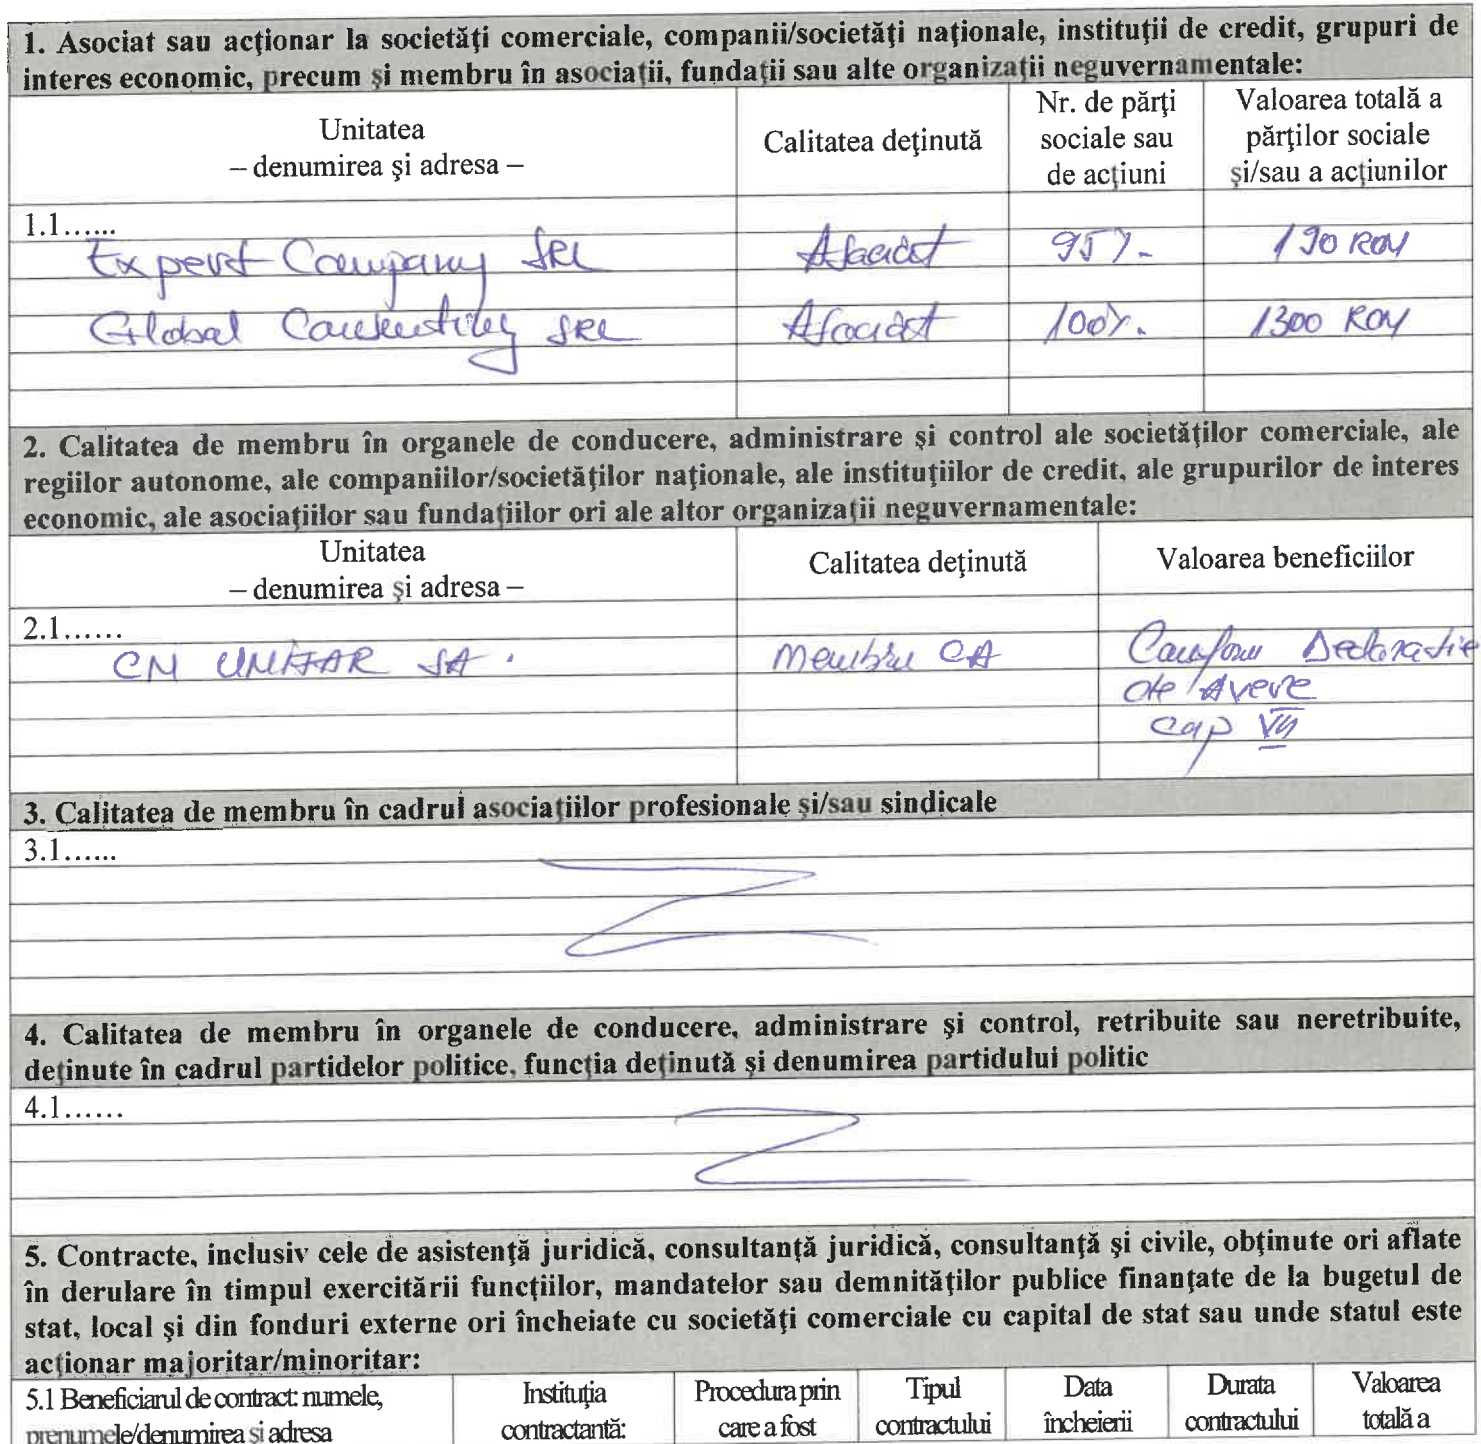 1. Asociat sau acţionar la societăţi comerciale, companii/societăţi naţionale, instituţii de credit, grupuri de
interes economic, precum şi membru în asociaţii, fundaţii sau alte organizaţii neguvernamentale:
Unitatea
– denumirea şi adresa –
Calitatea deţinută
Nr. de părţi
sociale sau
de acţiuni
Valoarea totală a
părţilor sociale
şi/sau a acţiunilor
1.1......
Expert Company SRL
Asociat
95%
190 RON
Global Consulting SRL
Asociat
100%
1300 RON
2. Calitatea de membru în organele de conducere, administrare şi control ale societăţilor comerciale, ale
regiilor autonome, ale companiilor/societăţilor naţionale, ale instituţiilor de credit, ale grupurilor de interes
economic, ale asociaţiilor sau fundaţiilor ori ale altor organizaţii neguvernamentale:
Unitatea
– denumirea şi adresa –
Calitatea deţinută
Valoarea beneficiilor
2.1......
CN SA
Membru CA
Conform Declaratie
de Avere
cap VII
3. Calitatea de membru în cadrul asociaţiilor profesionale şi/sau sindicale
3.1......
4. Calitatea de membru în organele de conducere, administrare şi control, retribuite sau neretribuite,
deţinute în cadrul partidelor politice, funcţia deţinută şi denumirea partidului politic
4.1......
5. Contracte, inclusiv cele de asistenţă juridică, consultanţă juridică, consultanţă şi civile, obţinute ori aflate
în derulare în timpul exercitării funcţiilor, mandatelor sau demnităţilor publice finanţate de la bugetul de
stat, local şi din fonduri externe ori încheiate cu societăţi comerciale cu capital de stat sau unde statul este
acţionar majoritar/minoritar:
5.1 Beneficiarul de contract: numele,
prenumele/denumirea şi adresa
Instituţia
contractantă:
Procedura prin
care a fost
Tipul
contractului
Data
încheierii
Durata
contractului
Valoarea
totală a